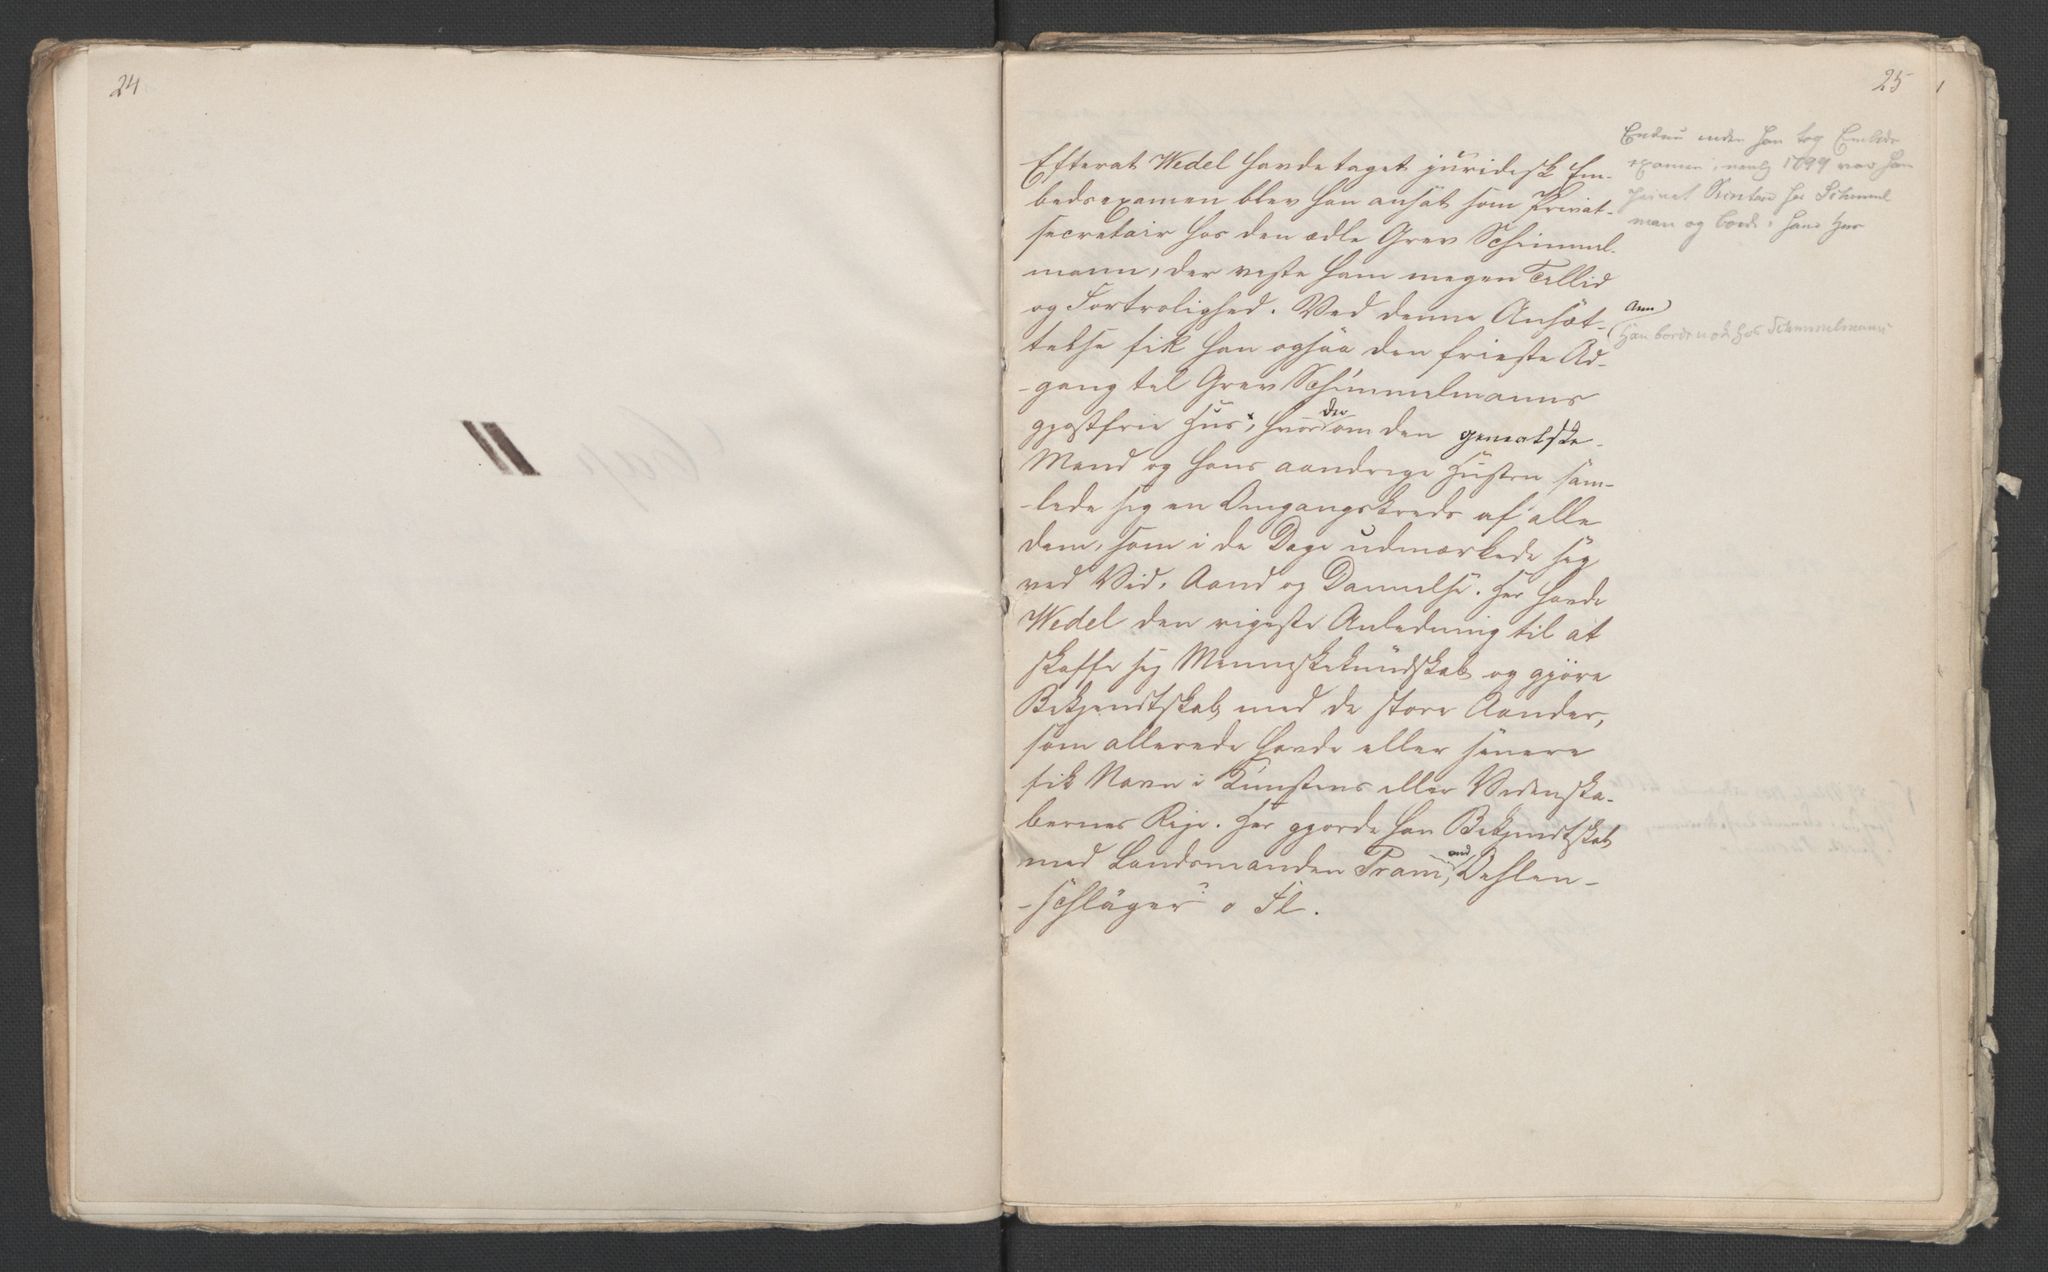 24
25
Efterat Wedel havde taget juridisk Em-
bedsexamen blev han ansat som Privat-
secretair hos den ædle Grev Schimmel-
mann, der veste ham megen Tillid
og Fortrolighed. Ved denne Ansæt-
telse fik han ogsaa den frieste Ad-
-gang til Grev Schimmelmanns
gjæstfrie Hus x, hvor der om den genialske
Mand og hans aandrige Hustru sam-
-lede sig en Omgangskreds af alle
dem, som i de Dage udmærkede sig
ved Vid, Aand og Dannelse. Her havde
Wedel den rigeste Anledning til at
skaffe sig Menneskekundskab og gjøre
Bekjendtskab med de store Aander,
som allerede havde eller senere
fik Navn i Kunstens eller Videnska-
bernes Rige. Her gjorde han Bekjendtskab
med Landsmanden Pram, med Oehlen-
-schläger o Fl.
Endnu inden han tog Embeds
examen, nemlig 1799 var han
privat hos Schimmel
man og boede i hans Hus
Anm
Han boede nok hos Schimmelmann